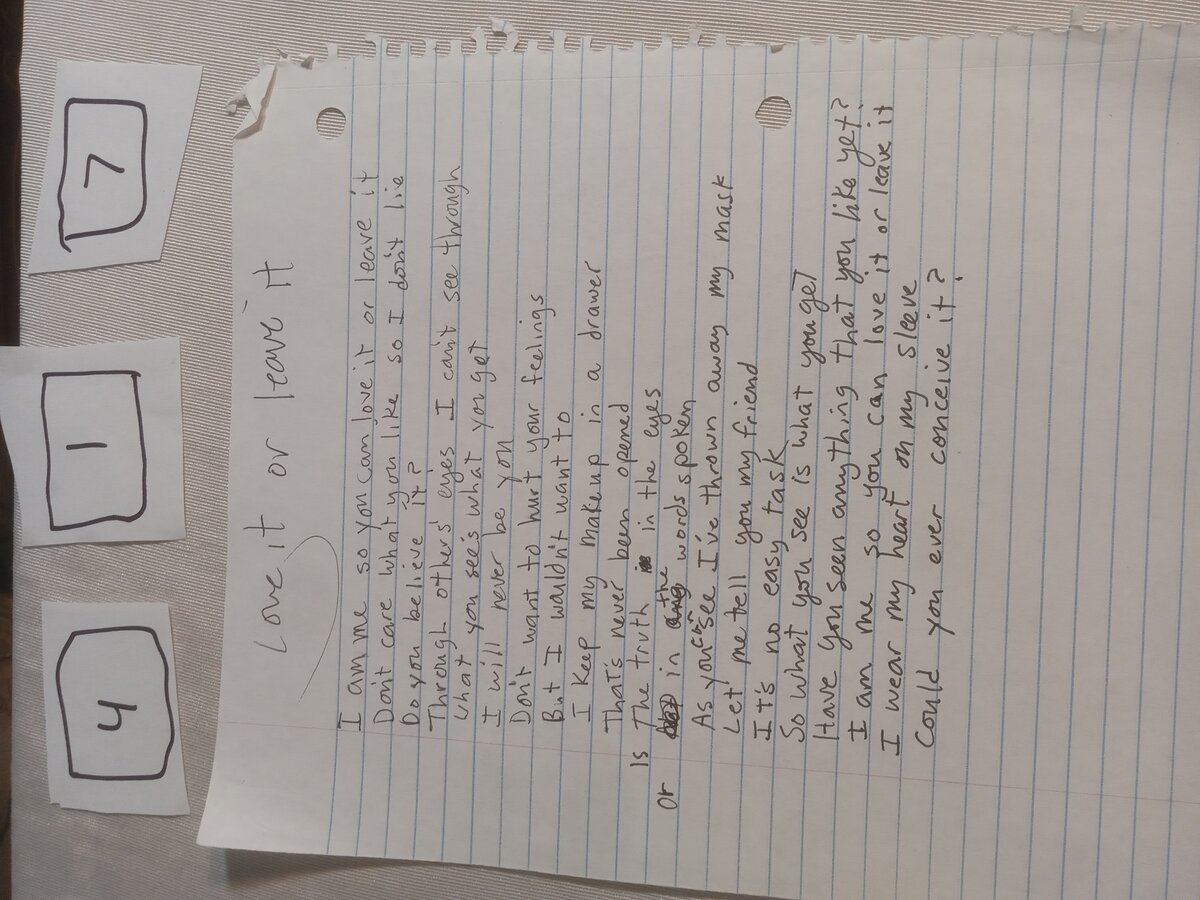 4
1
7
Love it or leave it
I am me so you can love it or leave it
Don't care what you like so I don't lie
Do you believe it?
Through others' eyes I can't see through
What you see's what you get
I will never be you
Don't want to hurt your feelings
But I wouldn't want to
I keep my makeup in a drawer
That's never been opened
Is The truth in the eyes
or in the words spoken
As you can see I've thrown away my mask
Let me tell you my friend
It's no easy task
So what you see is what you get
Have you seen anything that you like yet?
I am me so you can love it or leave it
I wear my heart on my sleeve
Could you ever conceive it?